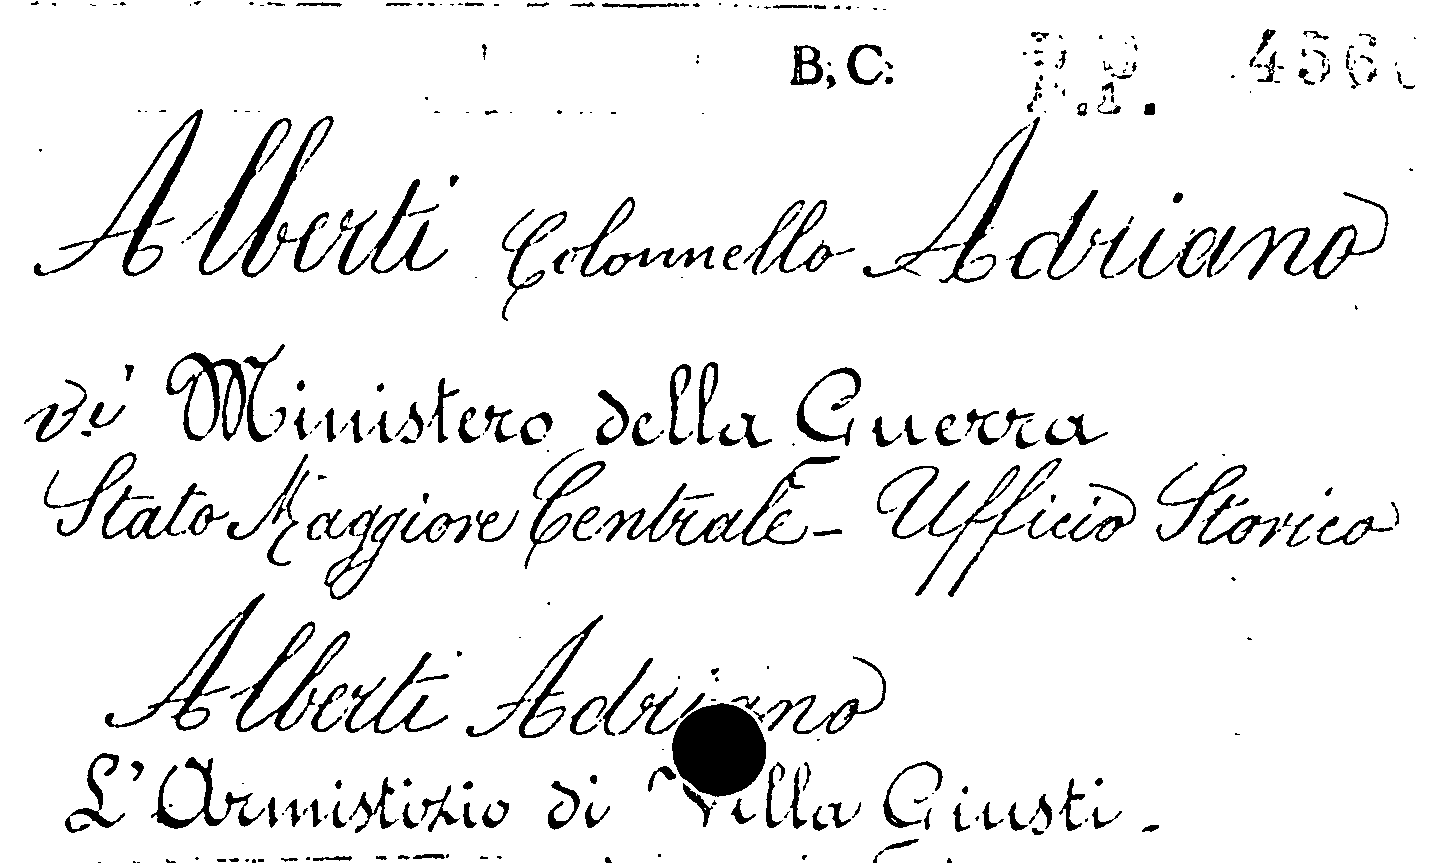 B; C: R.P. 456
Alberti Colonnello Adriano
vi' Ministero della Guerra
Stato Maggiore Centrale - Ufficio Storico
Alberti Adriano
L'Armistizio di Villa Giusti -